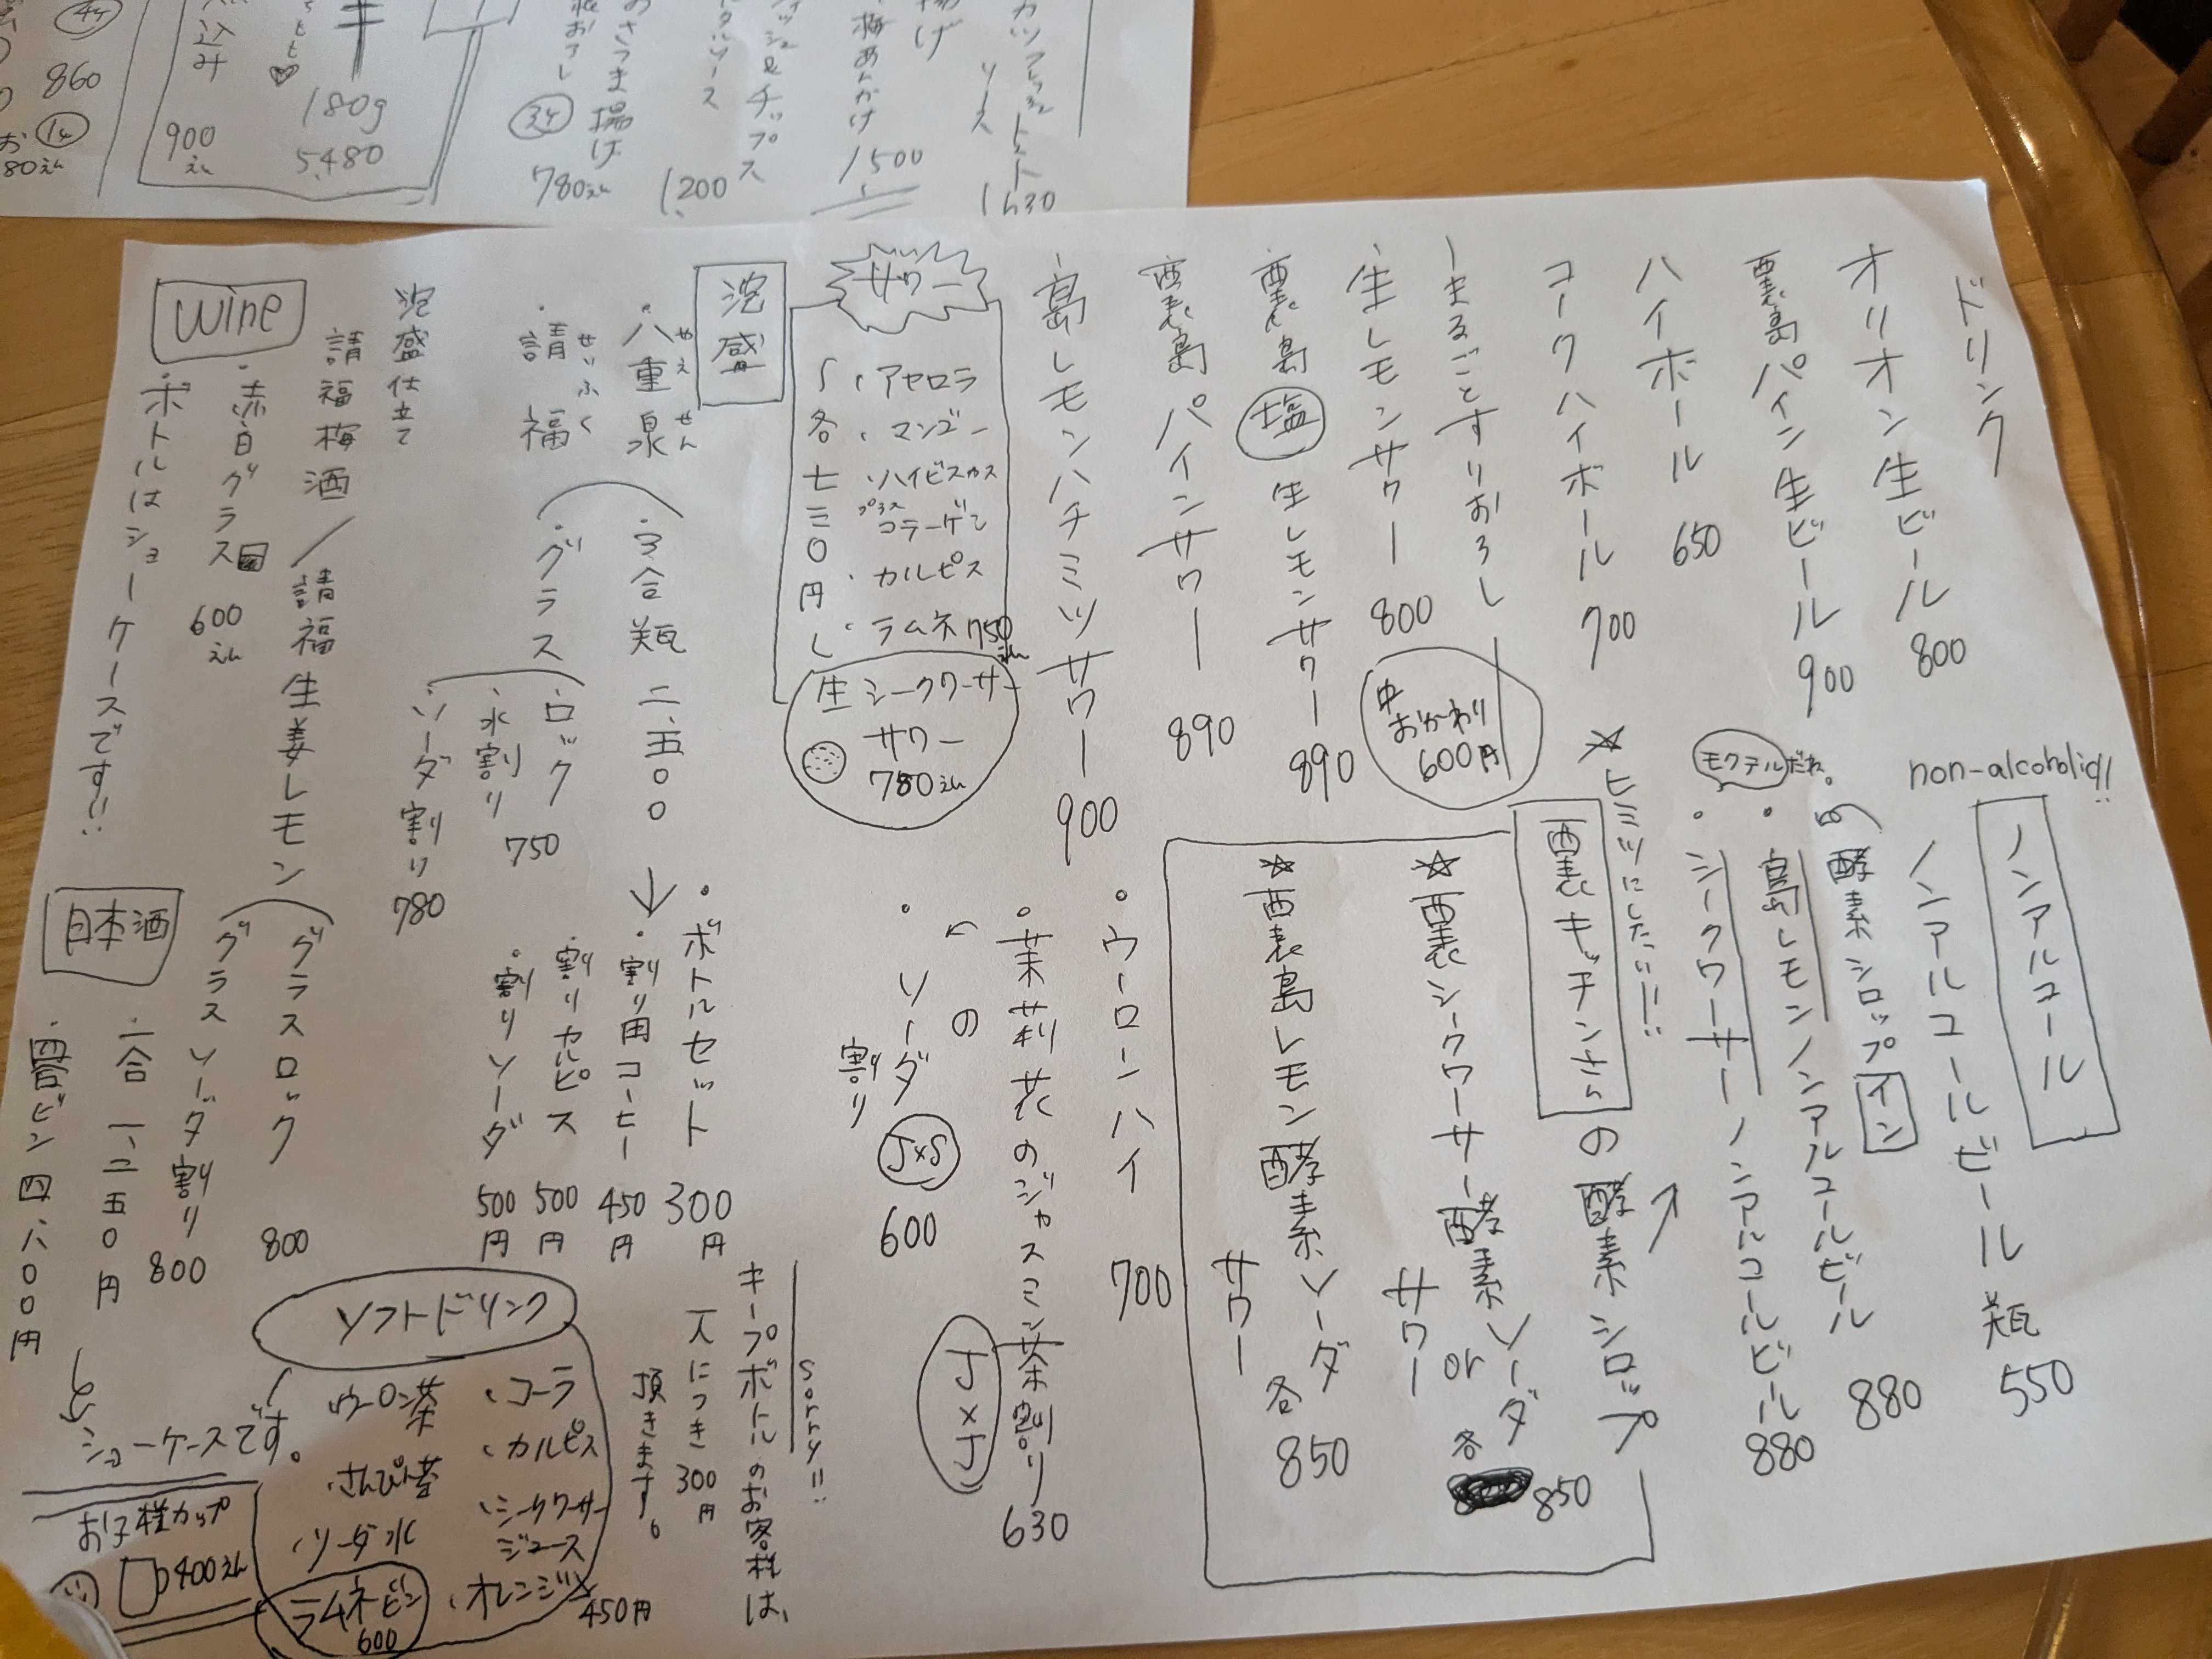 860
込み
900
えん
180g
5,480
さつま揚げ
780えん
タルソース
1,200
チップス
梅あんかけ
1500
揚げ
ソース
ドリンク
オリオン生ビール 800
西表島パイン生ビール 900
ハイボール 650
コークハイボール 700
まるごとすりおろし
・生レモンサワー 800
中
おかーわり
600円
・西表島塩生レモンサワー 890
・西表島パインサワー 890
・島レモンハチミツサワー 900
サワー
・アセロラ
・マンゴー
・ハイビスカス
プラス
コラーゲン
・カルピス
・ラムネ 750えん
各七三〇円
生シークワーサー
サワー
780えん
泡盛
・八重泉
やえせん
・請福
せいふく
・三合瓶 二、五〇〇
・グラス
・ロック
・水割り 750
・ソーダ割り 780
泡盛仕立て
請福梅酒/請福生姜レモン
グラスロック 800
グラスソーダ割り 800
wine
・赤白グラス 600えん
・ボトルはショーケースです!!
non-alcoholic!!
ノンアルコール
ノンアルコールビール 瓶 550
の酵素シロップイン
モクテルだね。
・島レモンノンアルコールビール 880
・シークワーサーノンアルコールビール 880
☆ヒミツにしたいー!!
西表キッチンさんの酵素シロップ
☆西表シークワーサー酵素ソーダ
or
サワー
各 850
☆西表島レモン酵素ソーダ
サワー
各 850
・ウーローンハイ 700
・茉莉花のジャスミン茶割り 630
J×J
・〃のソーダ割り
J×S
600
・ボトルセット 300円
・割り用コーヒー 450円
・割りカルピス 500円
・割りソーダ 500円
sorry!!
キープボトルのお客様は、
一人につき300円
頂きます。
日本酒
・一合 一、二五〇円
ショーケースです。
ソフトドリンク
・コーラ
・カルピス
・シークワーサー
ジュース
・オレンジ
450円
ウーロン茶
・さんぴん茶
・ソーダ水
ラムネビン
600
お子様カップ
400えん